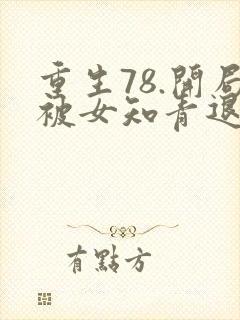 重生78.開局
被女知青退
有點方